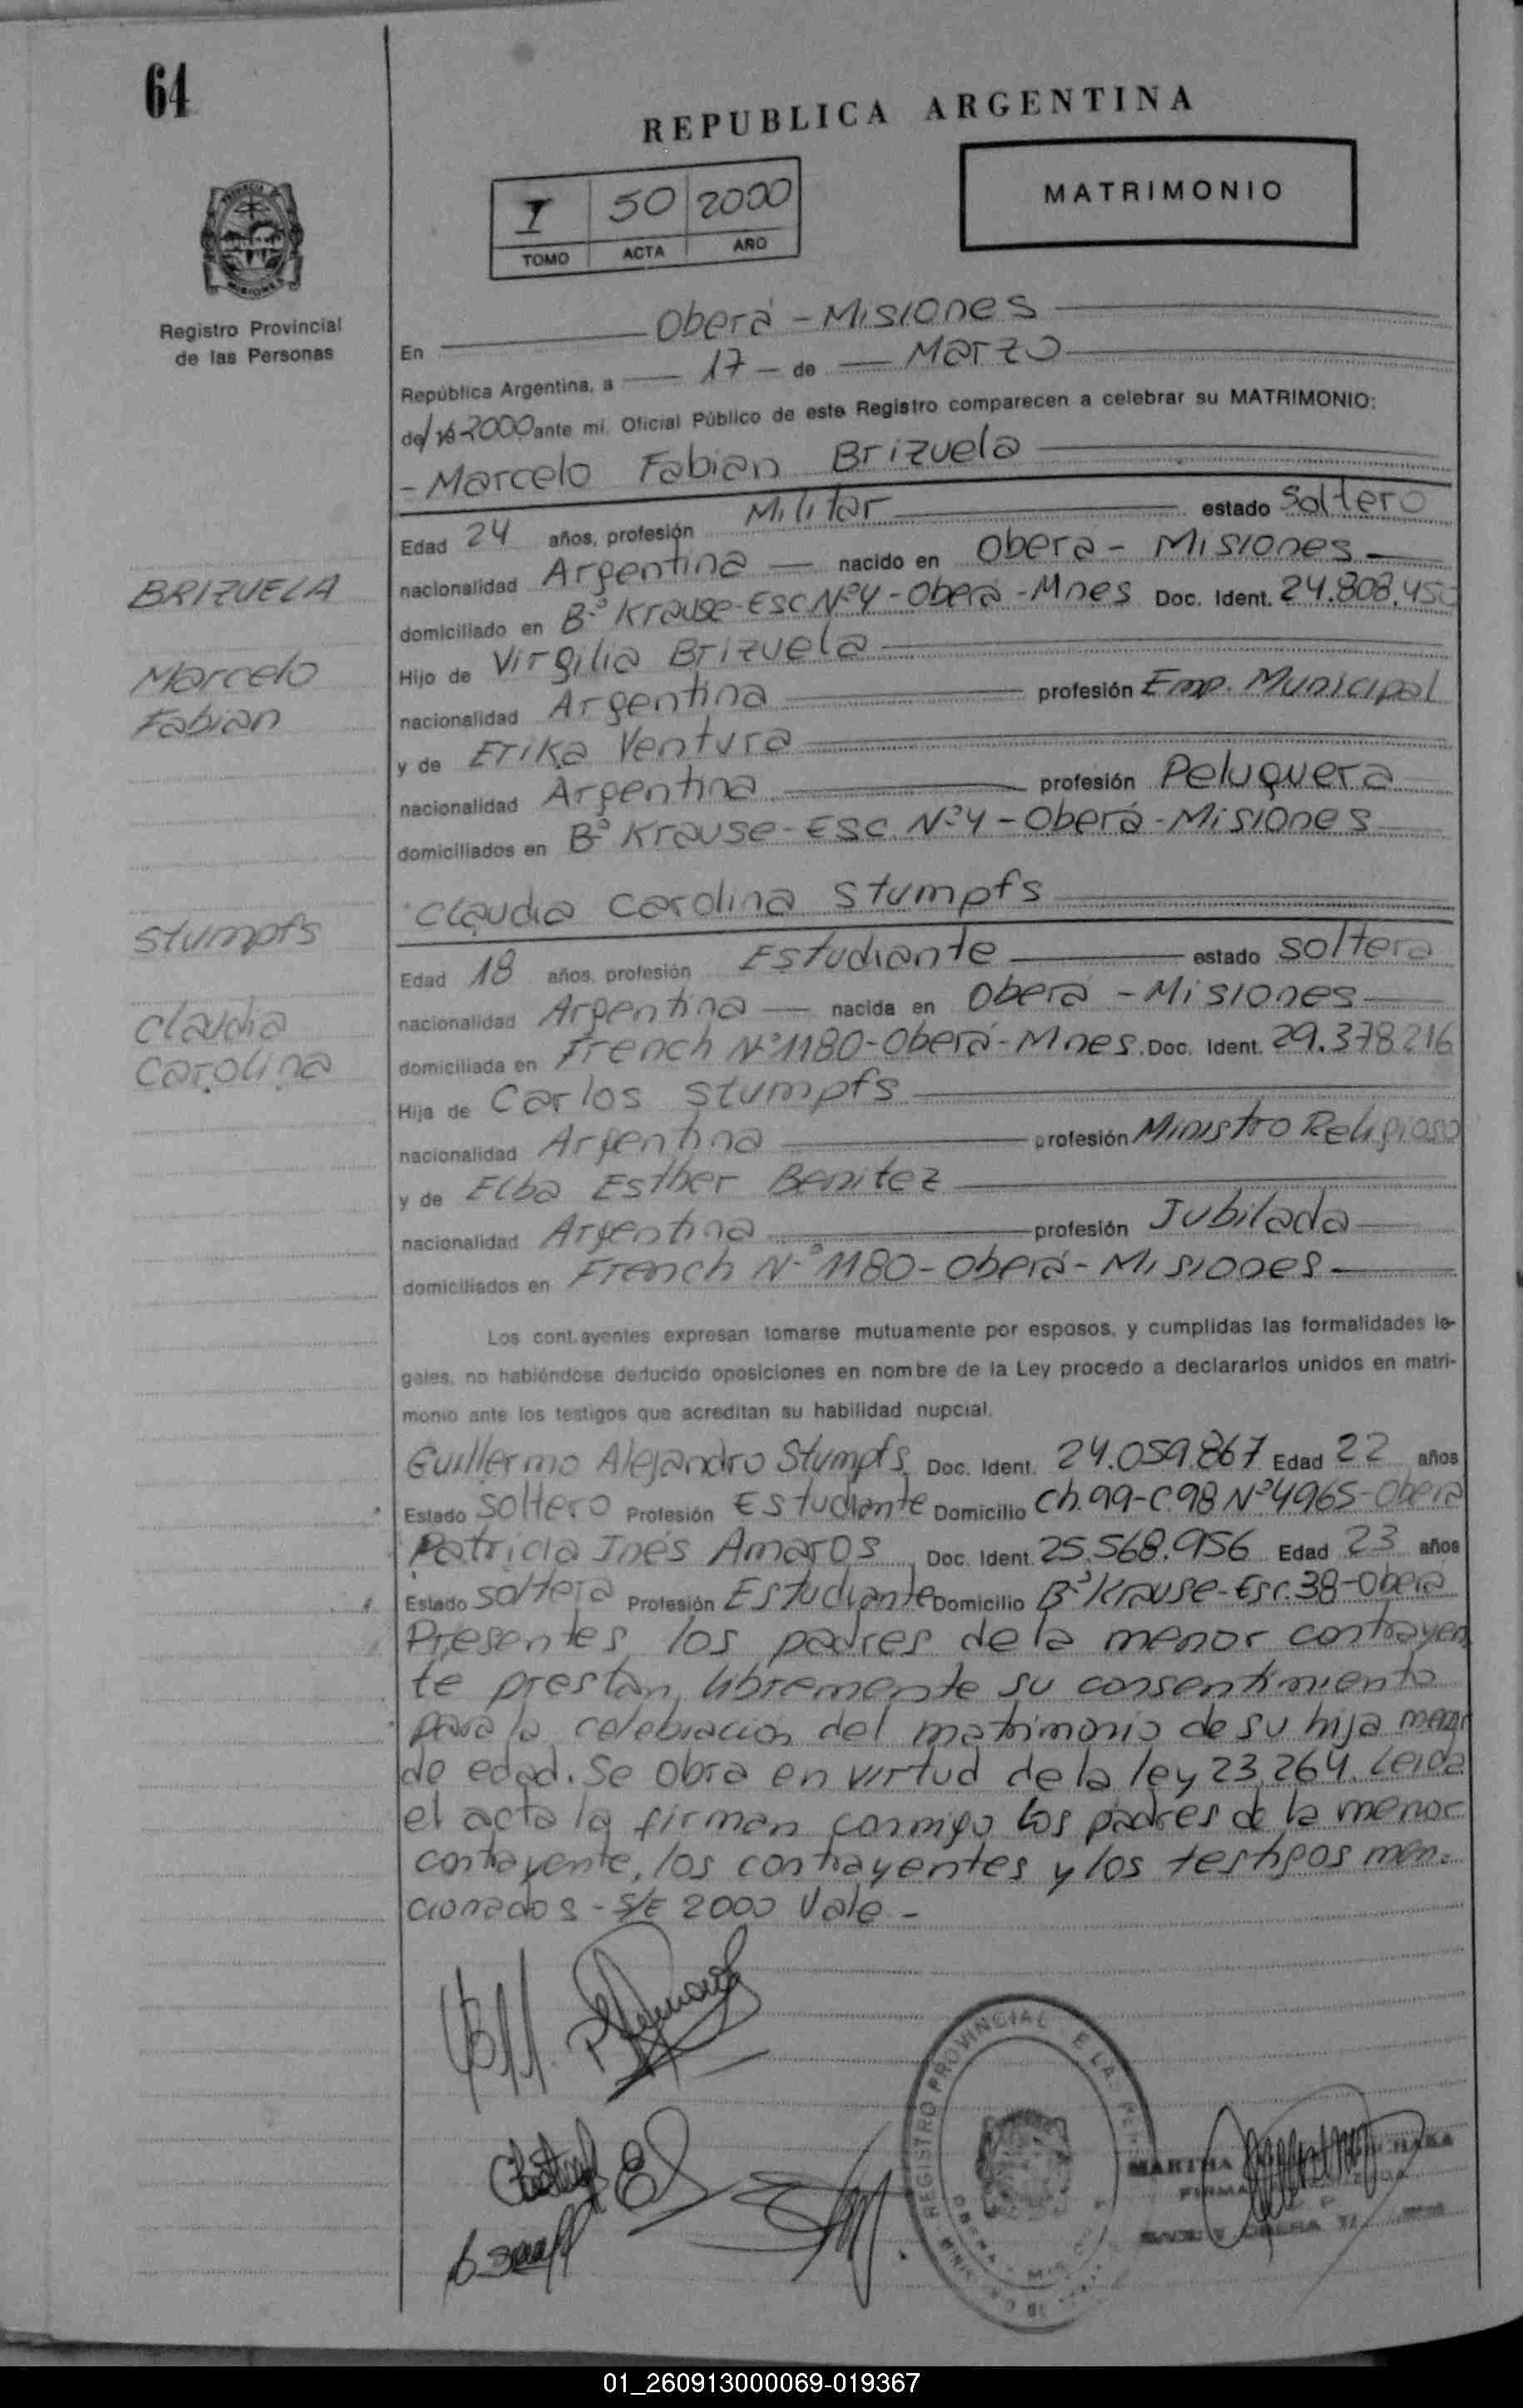 64
REPUBLICA ARGENTINA
I 50 2000
TOMO ACTA AÑO
MATRIMONIO
Registro Provincial
de las Personas
En Oberá - Misiones
República Argentina, a 17 de Marzo
de 2000 ante mí, Oficial Público de este Registro comparecen a celebrar su MATRIMONIO:
- Marcelo Fabian Brizuela
Edad 24 años, profesión Militar estado Soltero
nacionalidad Argentina nacido en Oberá - Misiones
BRIZUELA
domiciliado en Bº Krause-Esc Nº4-Oberá-Mnes Doc. Ident. 24.808.450
Hijo de Virgilio Brizuela
Marcelo
Fabian
nacionalidad Argentina profesión Emp. Municipal
y de Erika Ventura
nacionalidad Argentina profesión Peluquera
domiciliados en Bº Krause-Esc. Nº4-Oberá-Misiones
Claudia Carolina Stumpfs
Stumpfs
Edad 18 años, profesión Estudiante estado Soltera
nacionalidad Argentina nacida en Oberá - Misiones
Claudia
Carolina
domiciliada en French Nº1180-Oberá-Mnes. Doc. Ident. 29.378.216
Hija de Carlos Stumpfs
nacionalidad Argentina profesión Ministro Religioso
y de Elba Esther Benitez
nacionalidad Argentina profesión Jubilada
domiciliados en French Nº1180-Oberá-Misiones
Los contrayentes expresan tomarse mutuamente por esposos, y cumplidas las formalidades le-
gales, no habiéndose deducido oposiciones en nombre de la Ley procedo a declararlos unidos en matri-
monio ante los testigos que acreditan su habilidad nupcial.
Guillermo Alejandro Stumpfs Doc. Ident. 24.059.867 Edad 22 años
Estado Soltero Profesión Estudiante Domicilio Ch.99-C.98 Nº4965-Oberá
Patricia Inés Amaros Doc. Ident. 25.568.956 Edad 23 años
Estado Soltera Profesión Estudiante Domicilio Bº Krause-Esc.38-Oberá
Presentes los padres de la menor contrayen
te prestan libremente su consentimiento
para la celebración del matrimonio de su hija menor
de edad. Se obra en virtud de la ley 23.264. Leida
el acta la firman conmigo los padres de la menor
contrayente, los contrayentes y los testigos men-
cionados - S/E 2000 Vale -
REGISTRO PROVINCIAL
MARTHA
01_260913000069-019367